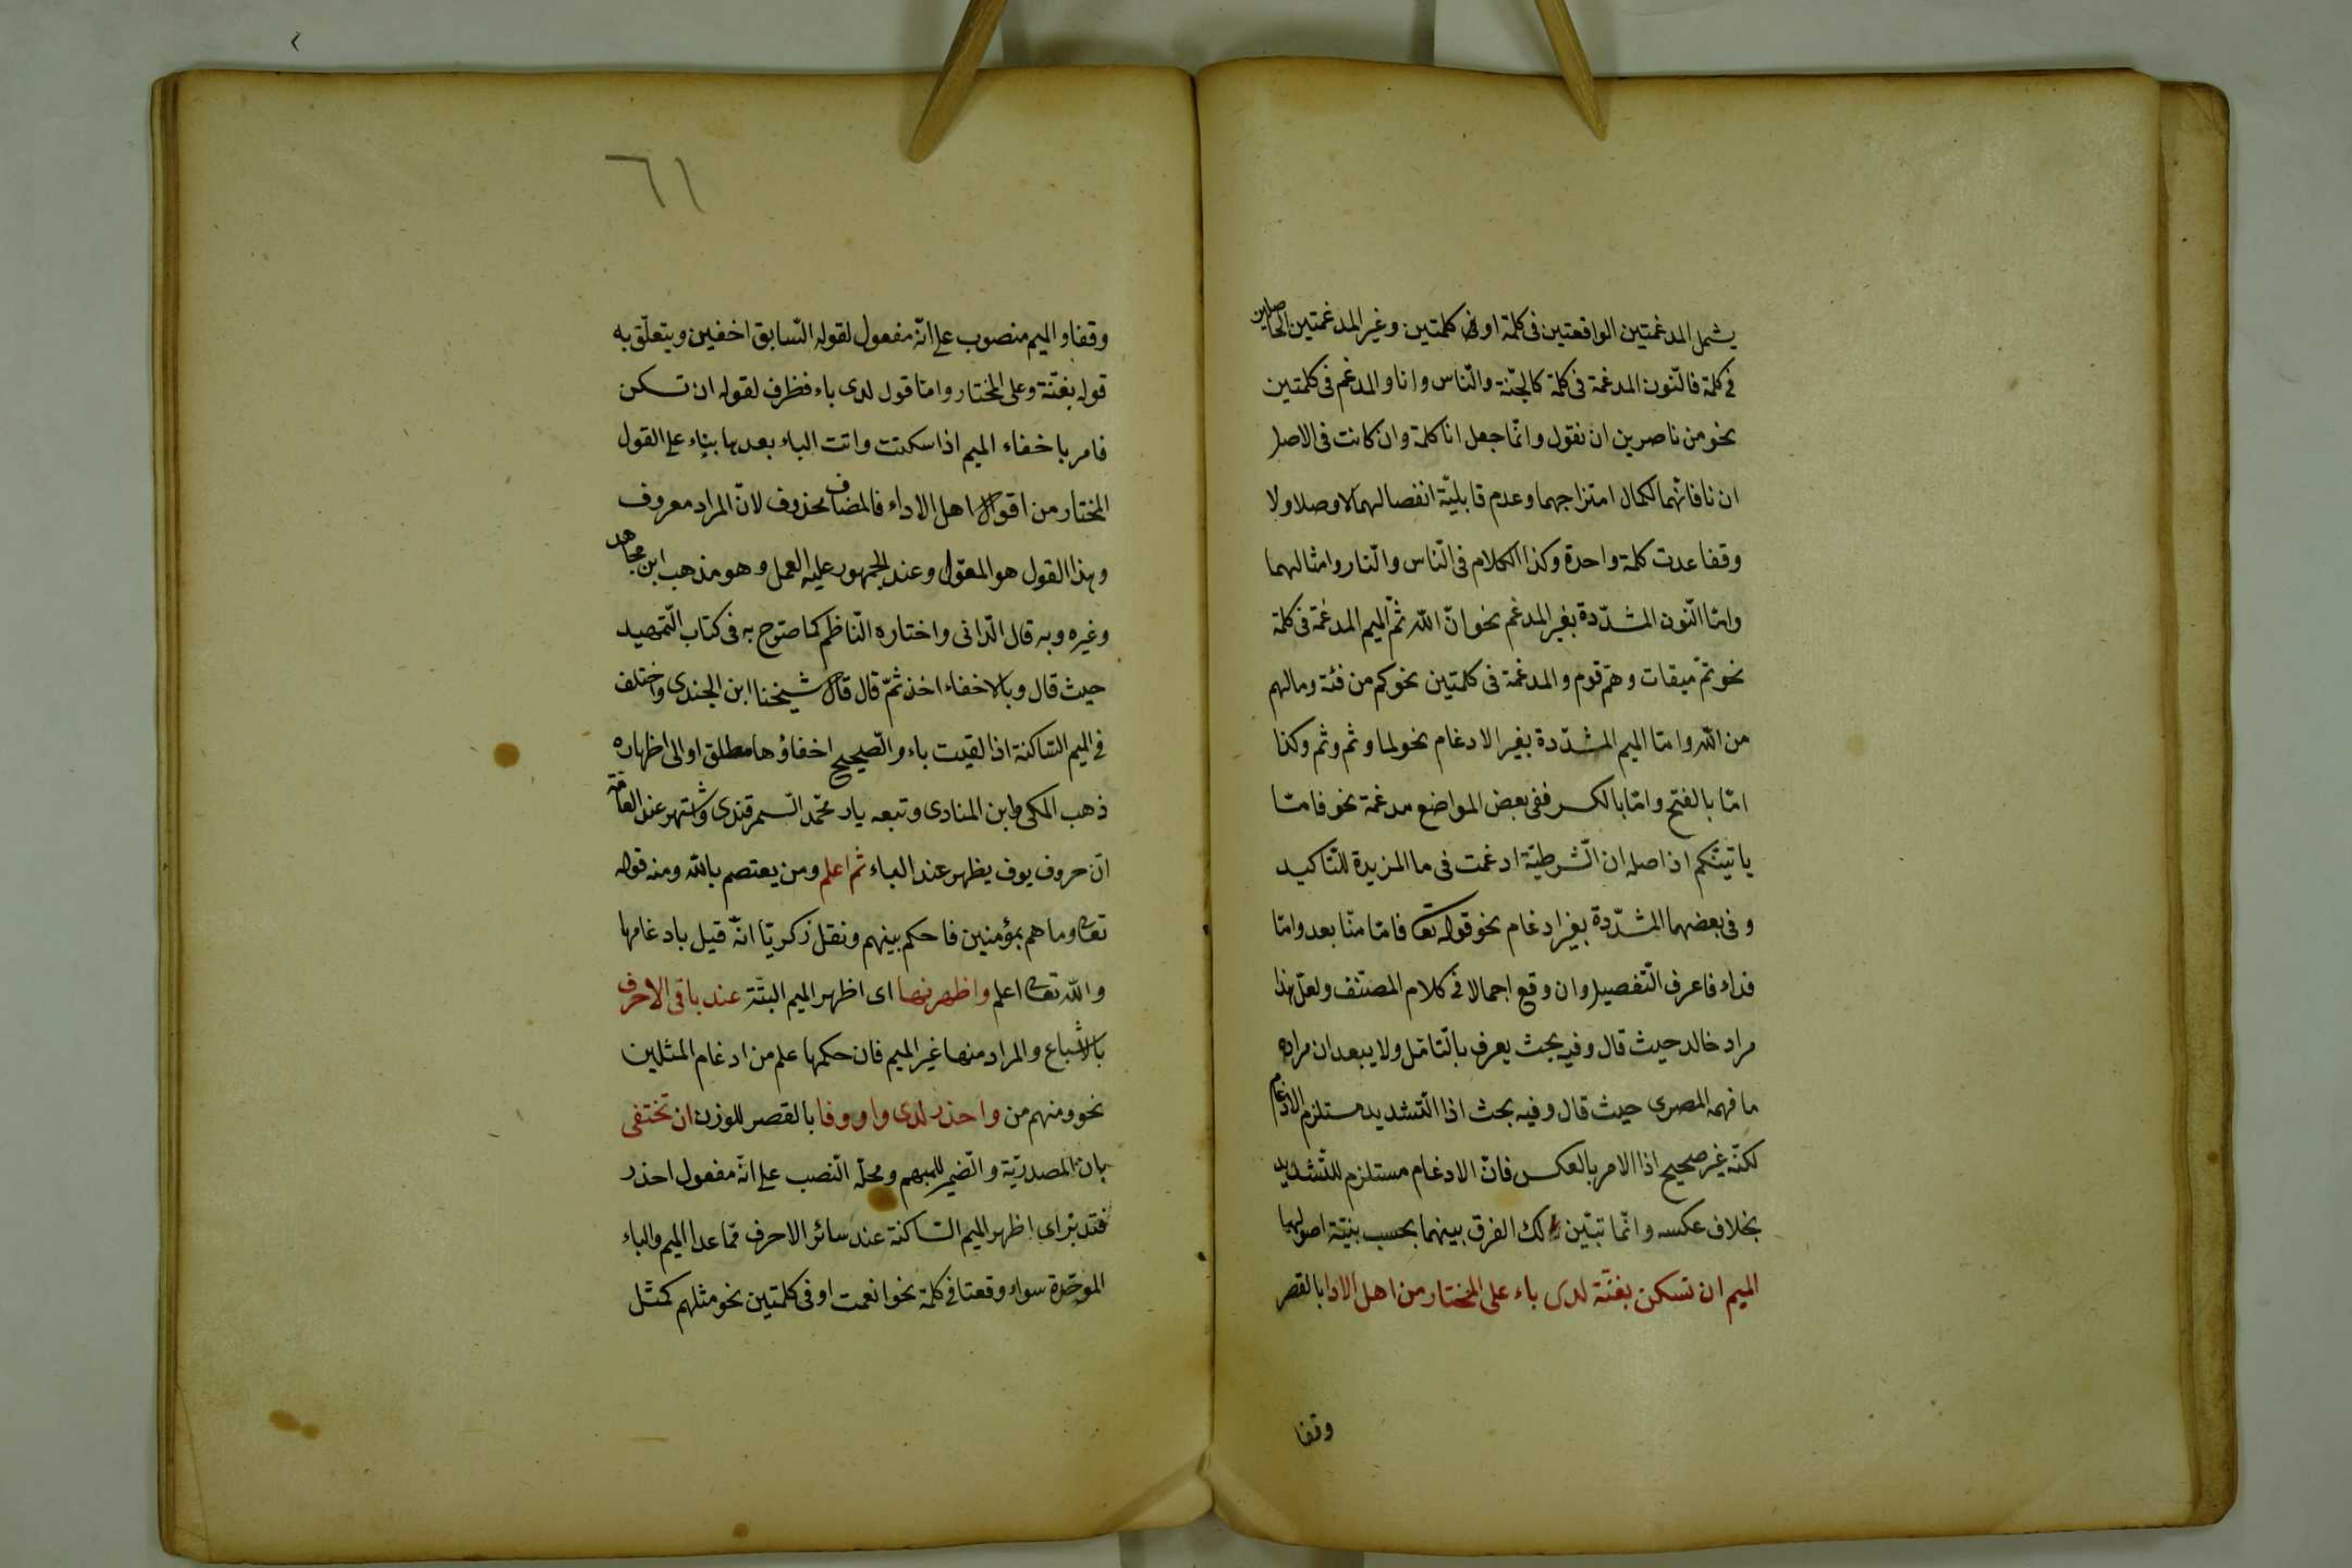 يشمل المدغمتين الواقعتين فى كلمة او فى كلمتين وغير المدغمتين الحاصلين
فى كلمة فالنّون المدغمة فى كلمة كالجنّة والنّاس وانا والمدغم فى كلمتين
نحو من ناصرين ان نقول وانّما جعل انا كلمة وان كانت فى الاصل
ان نا فانّهما لكمال امتزاجهما وعدم قابليّة انفصالهما لا وصلا ولا
وقفا عدت كلمة واحدة وكذا الكلام فى النّاس والنّار وامثالهما
وامّا النّون المشدّدة بغير المدغم نحو انّ الله ثمّ الميم المدغمة فى كلمة
نحو تمّ ميقات وهمّ قوم والمدغمة فى كلمتين نحو كم من فئة ومالهم
من الله وامّا الميم المشدّدة بغير الادغام نحو لما وثم وثم وكذا
امّا بالفتح وامّا بالكسر ففى بعض المواضع مدغمة نحو فامّا
ياتينّكم اذ اصله ان الشّرطيّة ادغمت فى ما المزيدة للتّاكيد
وفى بعضهما المشدّدة بغير ادغام نحو قوله تعا فامّا منّا بعد وامّا
فداء فاعرف التّفصيل وان وقع اجمالا فى كلام المصنّف ولعلّ هذا
مراد خالد حيث قال وفيه بحث يعرف بالتّامّل ولا يبعد ان مراده
ما فهمه المصرى حيث قال وفيه بحث اذا التّشديد مستلزم الادغام
لكنّه غير صحيح اذا الامر بالعكس فانّ الادغام مستلزم للتّشديد
بخلاف عكسه وانّما تبيّن لك الفرق بينهما بحسب بنيّة اصولهما
الميم ان تسكن بغنّة لدى باء على المختار من اهل الادا بالقصر
وقفا
٦١
وقفا والميم منصوب على انّه مفعول لقوله السّابق اخفين ويتعلّق به
قوله بغنّة وعلى المختار وامّا قول لدى باء فظرف لقوله ان تسكن
فامر باخفاء الميم اذا سكنت واتت الباء بعدها بناء على القول
المختار من اقوال اهل الاداء فالمضاف محذوف لانّ المراد معروف
وهذا القول هو المعوّل وعند الجمهور عليه العمل وهو مذهب ابن مجاهد
وغيره وبه قال الدّانى واختاره النّاظم كما صرّح به فى كتاب التّمهيد
حيث قال وبالاخفاء اخذ ثمّ قال قال شيخنا ابن الجندى واختلف
فى الميم السّاكنة اذا لقيت باء والصّحيح اخفاؤها مطلق او الى اظهاره
ذهب المكى وابن المنادى وتبعه يار محمّد السّمرقندى واشتهر عند العامّة
انّ حروف يوف يظهر عند الباء ثم اعلم ومن يعتصم بالله ومنه قوله
تعا وما هم بمؤمنين فاحكم بينهم ونقل زكريّا انّه قيل بادغامها
والله تعا اعلم واظهرنها اى اظهر الميم البتّة عند باقى الاحرف
بالاشباع والمراد منها غير الميم فان حكمها علم من ادغام المثلين
نحو ومنهم من واحذر لدى واو وفا بالقصر للوزن ان تختفى
بان المصدريّة والضّمير للمبهم ومحلّه النّصب على انّه مفعول احذر
فتدبّر اى اظهر الميم السّاكنة عند سائر الاحرف ممّا عدا الميم والباء
الموحّدة سواء وقعتا فى كلمة نحو انعمت او فى كلمتين نحو مثلهم كمثل